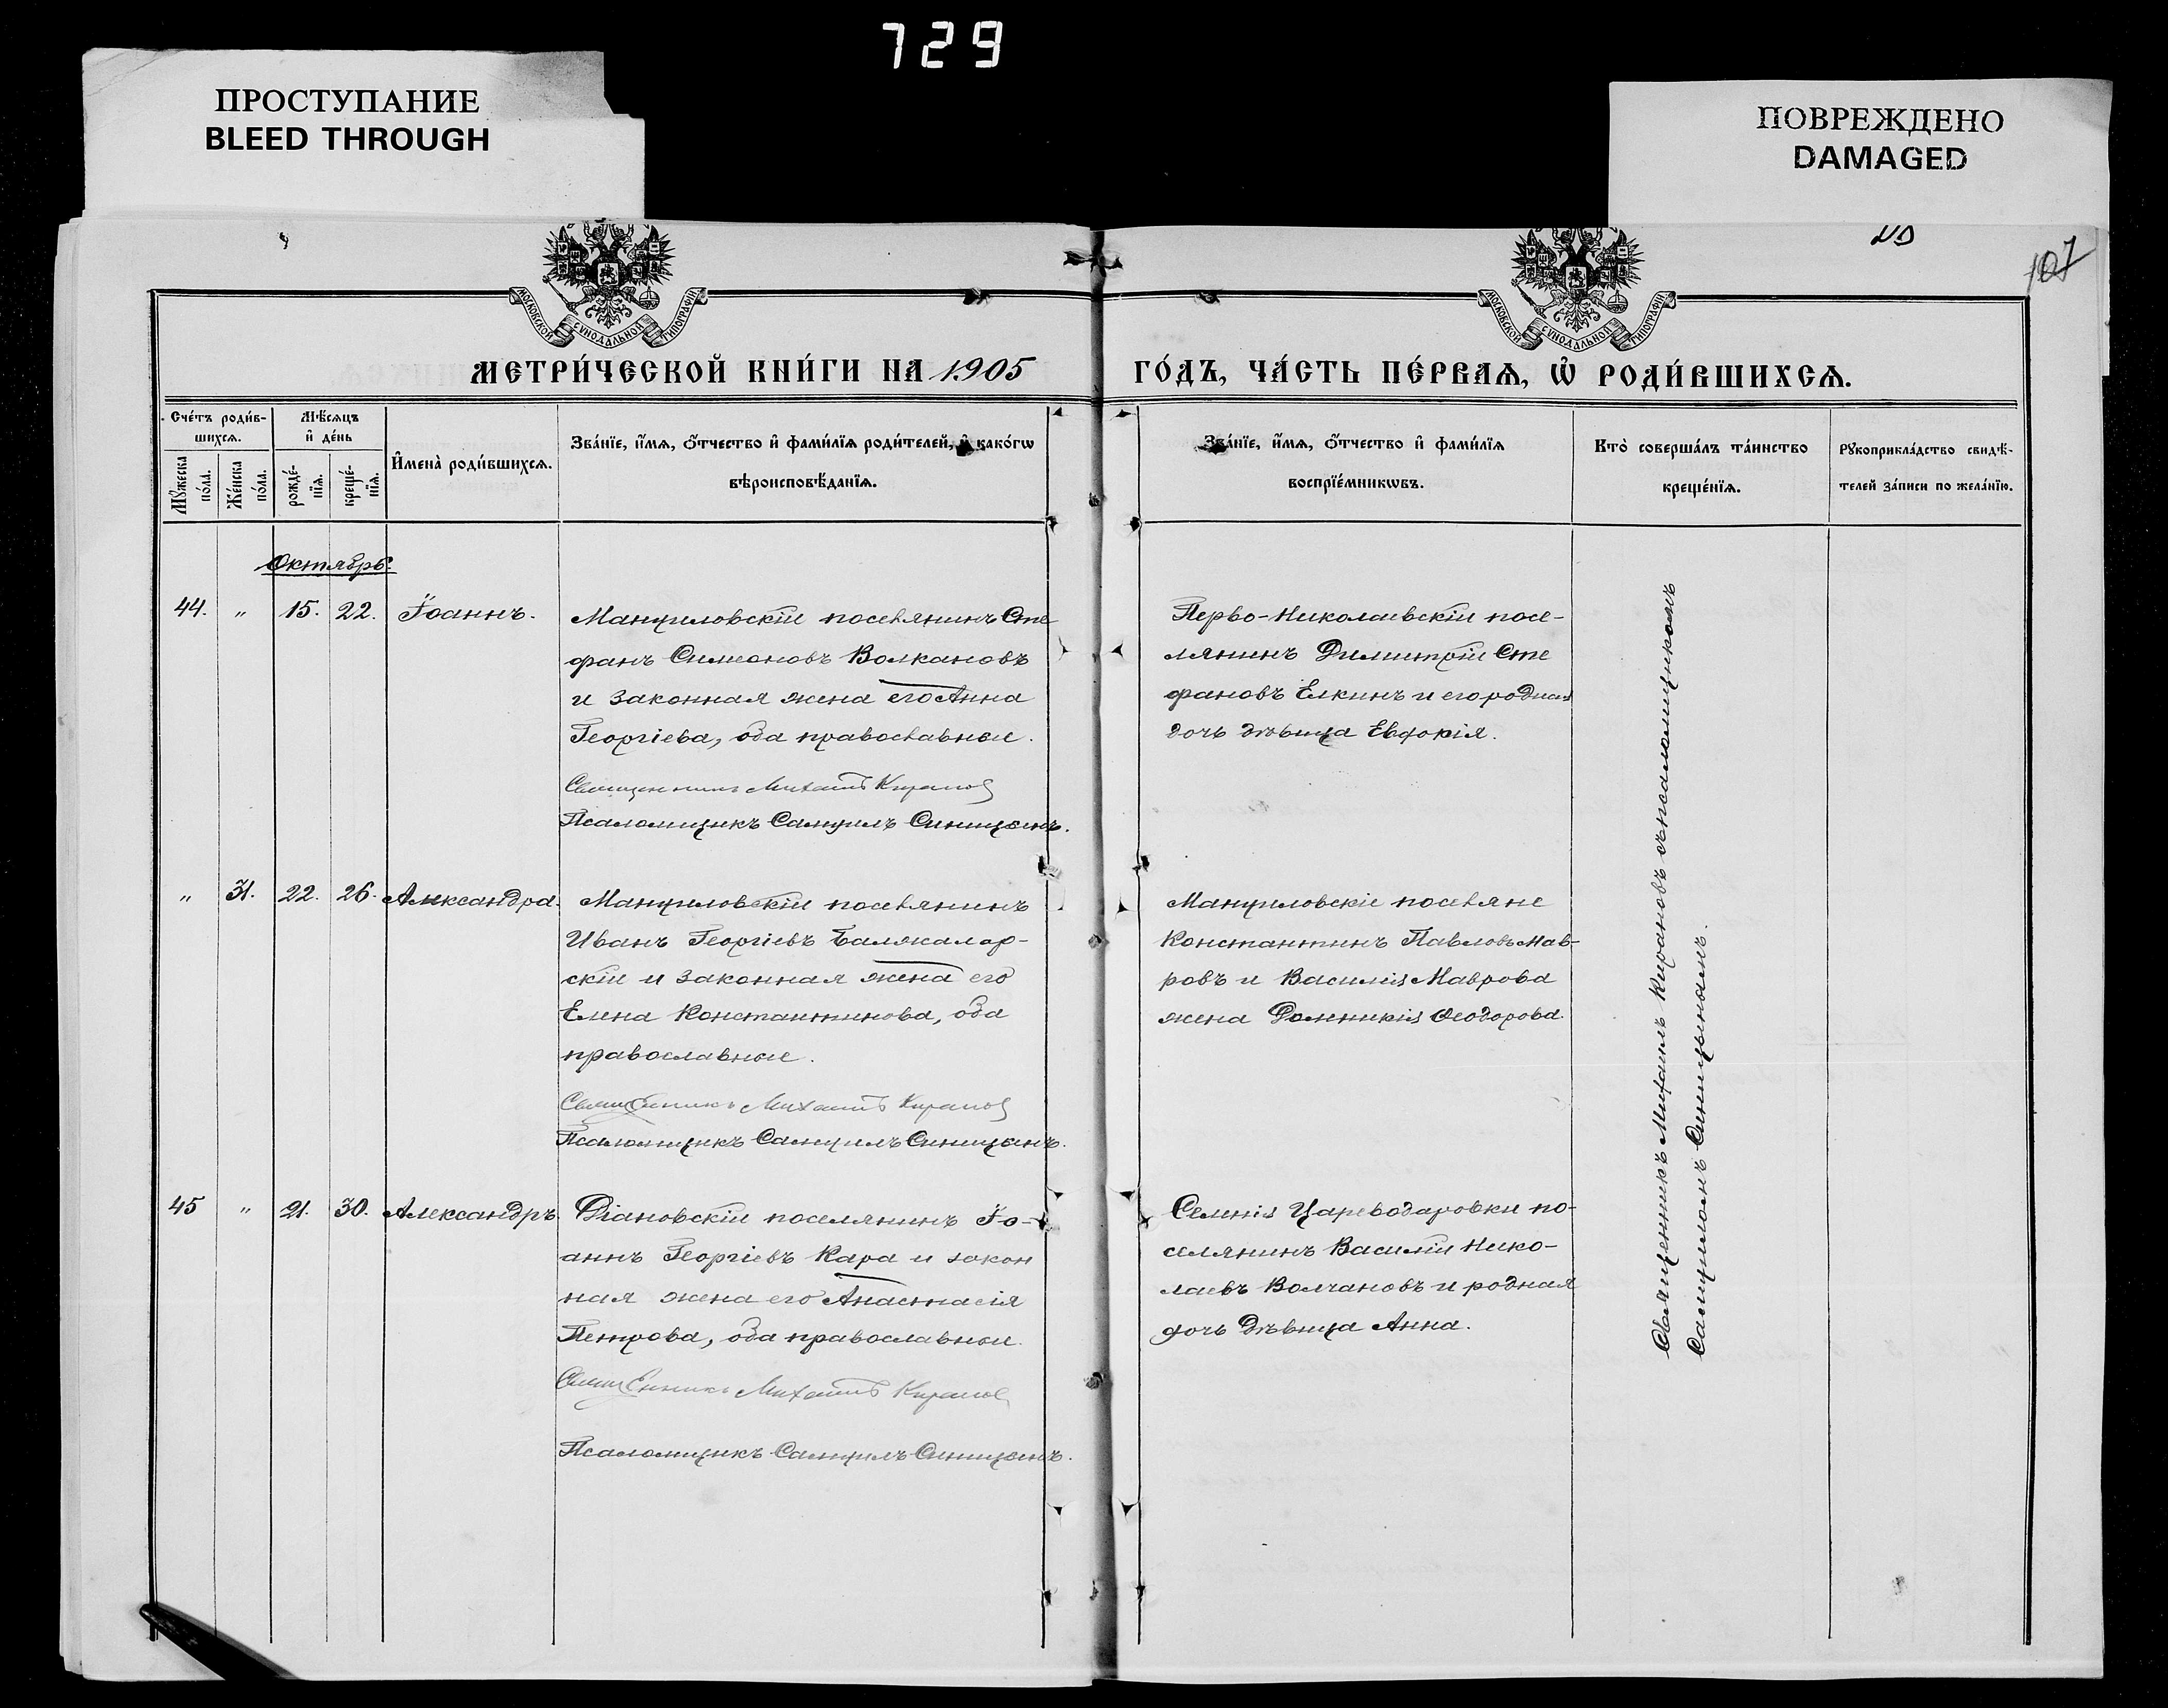 729
ПРОСТУПАНИЕ
BLEED THROUGH
ПОВРЕЖДЕНО
DAMAGED
107
МОСКОВСКОЙ СѴНОДАЛЬНОЙ ТИПОГРАФІИ
МОСКОВСКОЙ СѴНОДАЛЬНОЙ ТИПОГРАФІИ
МЕТРИ́ЧЕСКОЙ КНИ́ГИ НА 1905 ГО́ДЪ, ЧА́СТЬ ПЕ́РВАѦ, Ѡ҆ РОДИ́ВШИХСѦ.
Сче́тъ роди́в-
шихсѧ.
Мꙋ́жеска
по́ла.
Же́нска
по́ла.
Мѣ́сѧцъ
и҆ де́нь
рожде́-
нїѧ.
креще́-
нїѧ.
И҆мена̀ роди́вшихсѧ.
Зва́нїе, и҆́мѧ, ѻ҆́тчество и҆ фами́лїѧ роди́телей, и҆ како́гѡ
вѣроисповѣ́данїѧ.
Зва́нїе, и҆́мѧ, ѻ҆́тчество и҆ фами́лїѧ
воспрїе́мникѡвъ.
Кто̀ соверша́лъ та́инство
креще́нїѧ.
Рꙋкоприкла́дство свидѣ́-
телей за́писи по жела́нїю.
Октябрь.
44. „ 15. 22. Іоаннъ.
Мануиловскій поселянинъ Сте
фанъ Симеоновъ Волкановъ
и законная жена его Анна
Георгіева, оба православные.
Священникъ Михаилъ Кирановъ
Псаломщикъ Самуилъ Синицынъ.
Перво-Николаевскій посе-
лянинъ Димитрій Сте
фановъ Елкинъ и его родная
дочь дѣвица Евдокія.
„ 31. 22. 26. Александра.
Мануиловскій поселянинъ
Иванъ Георгіевъ Балжалар-
скій и законная жена его
Елена Константинова, оба
православные.
Священникъ Михаилъ Кирановъ
Псаломщикъ Самуилъ Синицынъ.
Мануиловскіе поселяне
Константинъ Павловъ Мав-
ровъ и Василія Маврова
жена Домникія Ѳеодорова.
45 „ 21. 30. Александръ.
Діановскій поселянинъ Іо-
аннъ Георгіевъ Кара и закон
ная жена его Анастасія
Петрова, оба православные.
Священникъ Михаилъ Кирановъ
Псаломщикъ Самуилъ Синицынъ.
Селенія Цареводаровки по-
селянинъ Василій Нико-
лаевъ Волчановъ и родная
дочь дѣвица Анна.
Священникъ Михаилъ Кирановъ съ псаломщикомъ
Самуиломъ Синицынымъ.